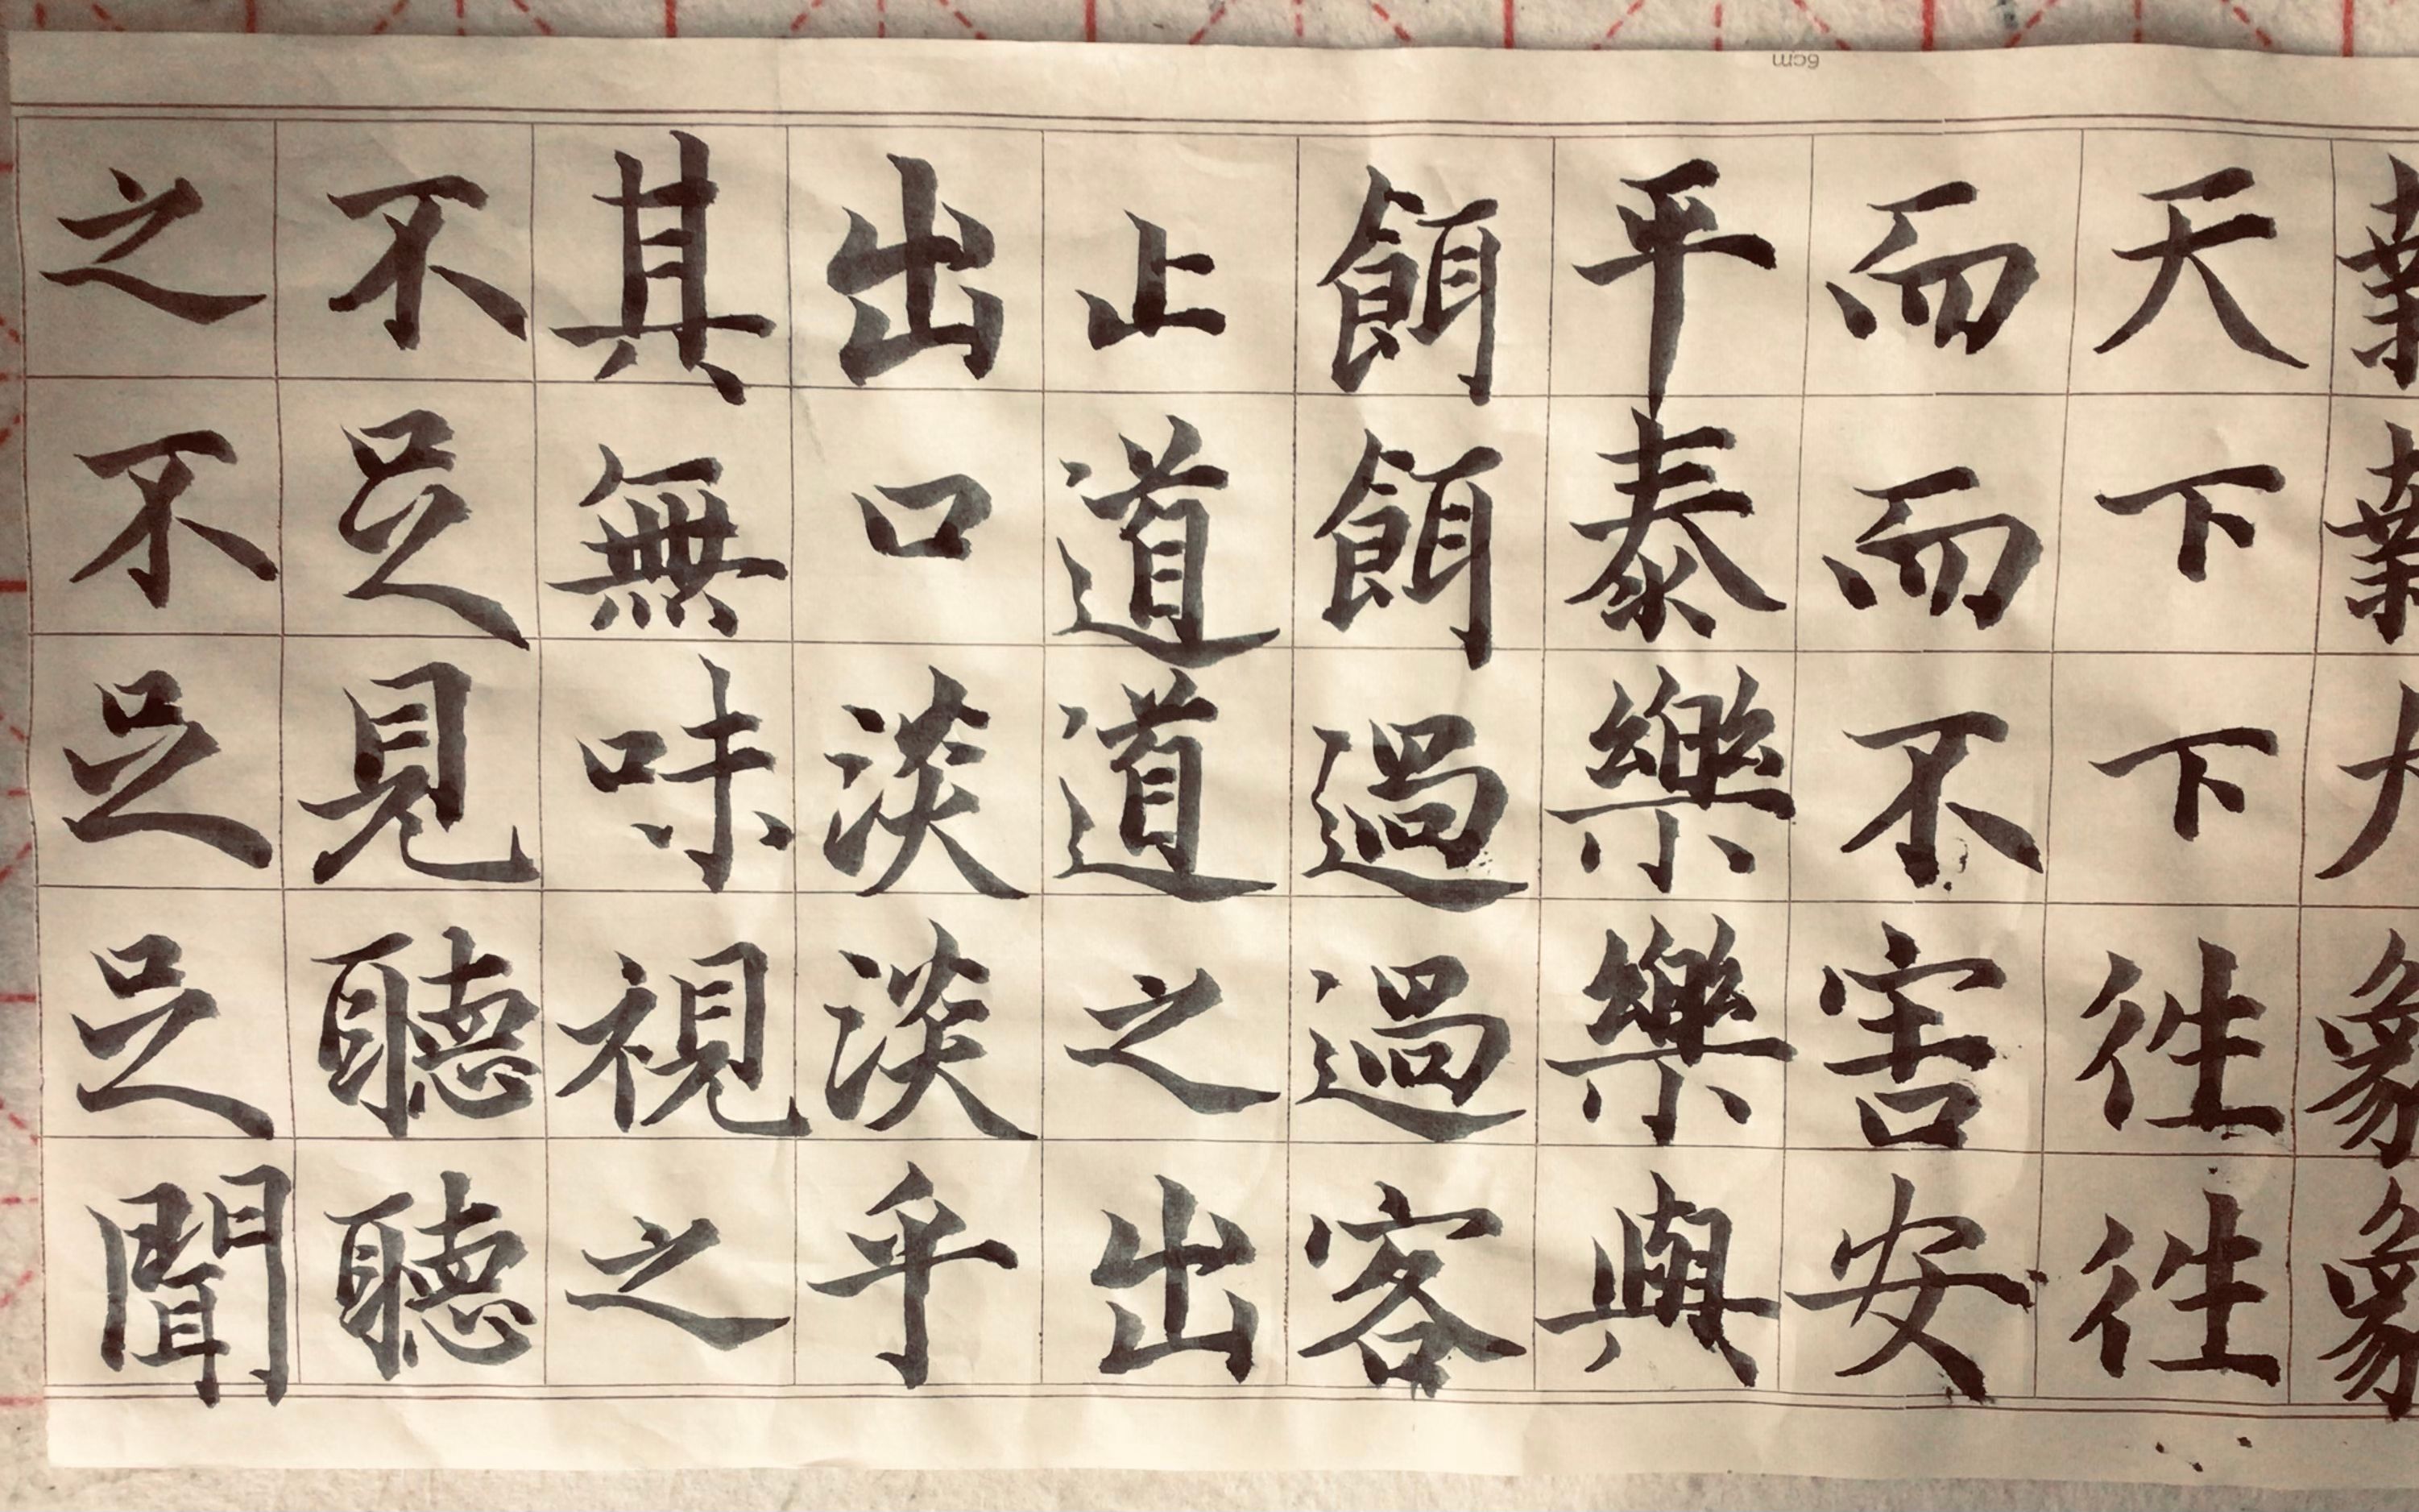 6cm
象象
天下下徃徃
而而不害安
平泰樂樂與
餌餌過過客
止道道之出
出口淡淡乎
其無味視之
不足見聽聽
之不足足聞